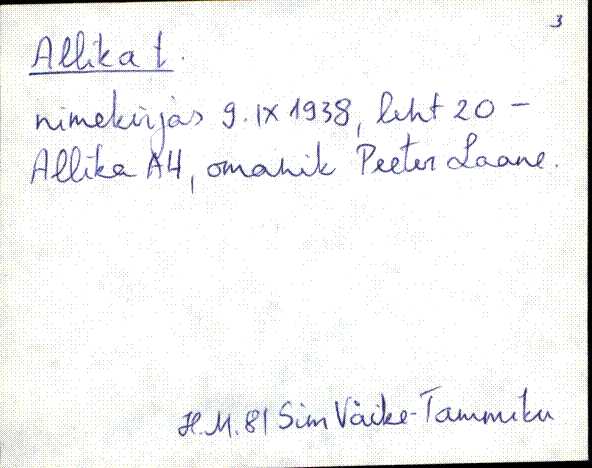 3
Allika t.
nimekirjas 9.IX 1938, leht 20 –
Allika A4, omanik Peeter Laane.
H.M. 81 Sim Väike-Tammiku